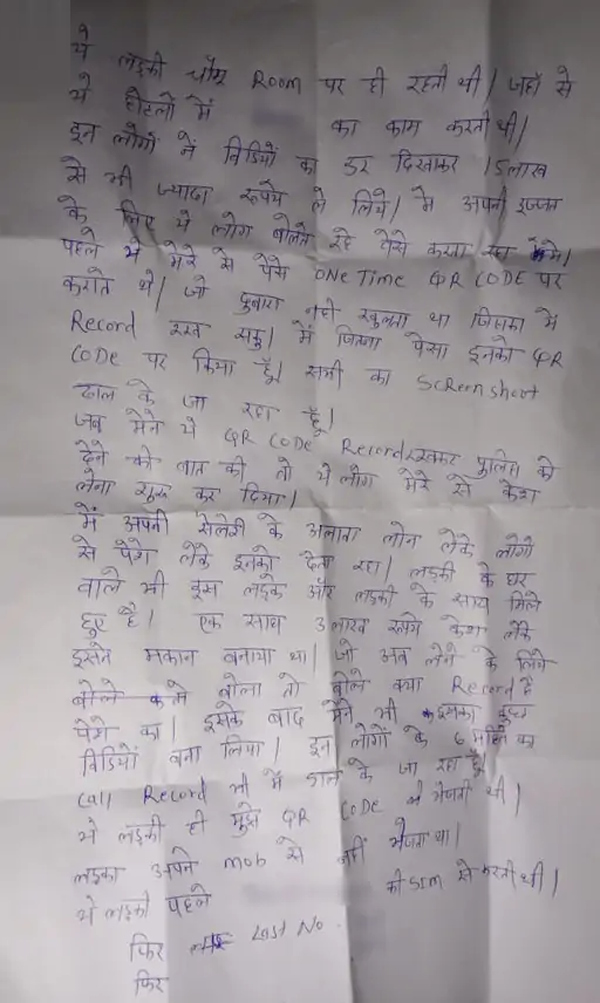 ये लड़की चोमू Room पर ही रहती थी। जहाँ से
ये होटलो में का काम करती थी।
इन लोगो ने विडियों का डर दिखाकर 15 लाख
से भी ज्यादा रूपये ले लिये। मे अपनी इज्जत
के लिए ये लोग बोलते रहे वेसे करता रहा
पहले ये मेरे से पैसे ONE Time QR CODE पर
कराते थे। जो दुबारा नही खुलता था जिसका में
Record रख सकु। में जितना पैसा इनको QR
CODE पर किया हूँ। सभी का Screen shoot
डाल के जा रहा हूँ।
जब मेने ये QR CODE Record रखकर पुलिस को
देने की बात की तो ये लोग मेरे से केश
लेना शुरू कर दिया।
में अपनी सेलेरी के अलावा लोन लेके लोगो
से पेसे लेके इनको देता रहा। लड़की के घर
वाले भी इस लड़के और लड़की के साथ मिले
हुए है। एक साथ 3 लाख रूपये केश लेके
इसने मकान बनाया था। जो अब लेने के लिये
बोले मे बोला तो बोले क्या Record है
पेसे का। इसके बाद मेने भी इसका कुछ
विडियों बना लिया। इन लोगों के 6 महिने का
Call Record भी में डाल के जा रहा हूँ।
ये लड़की ही मुझे QR CODE भेजती थी।
लड़का अपने mob से नहीं भेजता था।
ये लड़की पहले की SIM से करती थी।
फिर Last No.
फिर